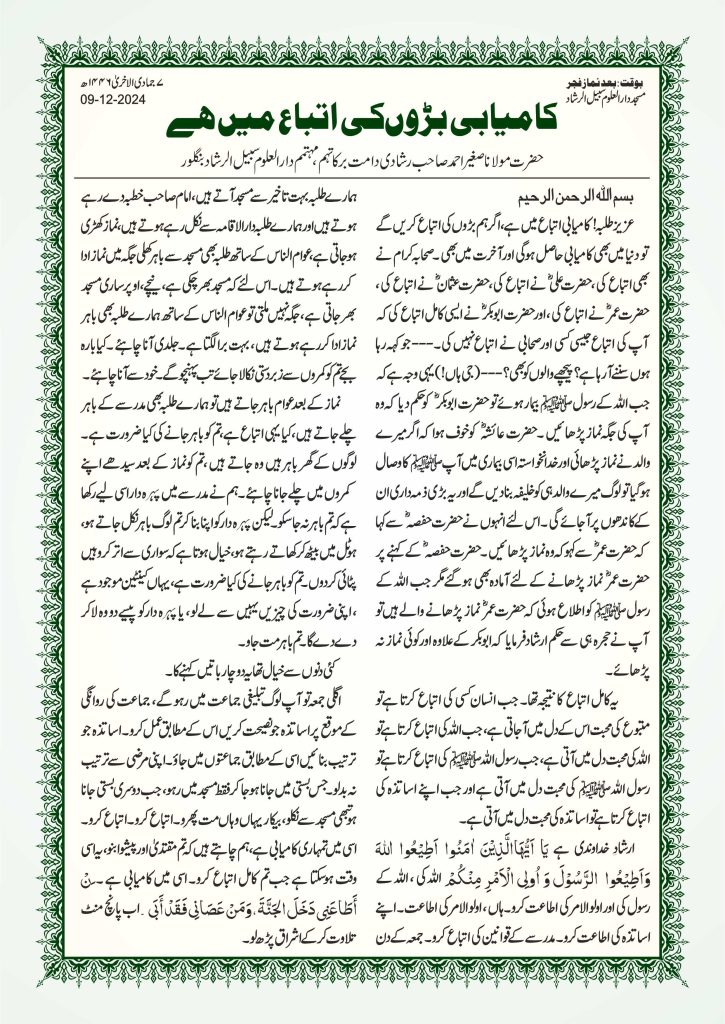 بوقت: بعد نماز فجر
مسجد دارالعلوم سبیل الرشاد
۷ جمادی الاخریٰ ۱۴۴۶ھ
09-12-2024
کامیابی بڑوں کی اتباع میں ھے
حضرت مولانا صغیر احمد صاحب رشادی دامت برکاتہم، مہتمم دارالعلوم سبیل الرشاد بنگلور
بسم اللہ الرحمن الرحیم
عزیز طلبہ! کامیابی اتباع میں ہے، اگر ہم بڑوں کی اتباع کریں گے
تو دنیا میں بھی کامیابی حاصل ہوگی اور آخرت میں بھی۔ صحابہ کرام نے
بھی اتباع کی، حضرت علیؓ نے اتباع کی، حضرت عثمانؓ نے اتباع کی،
حضرت عمرؓ نے اتباع کی، اور حضرت ابوبکرؓ نے ایسی کامل اتباع کی کہ
آپ کی اتباع جیسی کسی اور صحابی نے اتباع نہیں کی۔--- جو کہہ رہا
ہوں سننے آرہا ہے؟ پیچھے والوں کو بھی؟--- (جی ہاں!) یہی وجہ ہے کہ
جب اللہ کے رسول ﷺ بیمار ہوئے تو حضرت ابوبکرؓ کو حکم دیا کہ وہ
آپ کی جگہ نماز پڑھائیں۔ حضرت عائشہؓ کو خوف ہوا کہ اگر میرے
والد نے نماز پڑھائی اور خدانخواستہ اسی بیماری میں آپ ﷺ کا وصال
ہوگیا تو لوگ میرے والد ہی کو خلیفہ بنادیں گے اور یہ بڑی ذمہ داری ان
کے کاندھوں پر آجائے گی۔ اس لئے انہوں نے حضرت حفصہؓ سے کہا
کہ حضرت عمرؓ سے کہو کہ وہ نماز پڑھائیں۔ حضرت حفصہؓ کے کہنے پر
حضرت عمرؓ نماز پڑھانے کے لئے آمادہ بھی ہوگئے مگر جب اللہ کے
رسول ﷺ کو اطلاع ہوئی کہ حضرت عمرؓ نماز پڑھانے والے ہیں تو
آپ نے حجرہ ہی سے حکم ارشاد فرمایا کہ ابوبکر کے علاوہ اور کوئی نماز نہ
پڑھائے۔
یہ کامل اتباع کا نتیجہ تھا۔ جب انسان کسی کی اتباع کرتا ہے تو
متبوع کی محبت اس کے دل میں آجاتی ہے، جب اللہ کی اتباع کرتا ہے تو
اللہ کی محبت دل میں آتی ہے، جب رسول اللہ ﷺ کی اتباع کرتا ہے تو
رسول اللہ ﷺ کی محبت دل میں آتی ہے اور جب اپنے اساتذہ کی
اتباع کرتا ہے تو اساتذہ کی محبت دل میں آتی ہے۔
ارشاد خداوندی ہے یَا اَیُّهَا الَّذِیْنَ اٰمَنُوا اَطِیْعُوا اللهَ
وَاَطِیْعُوا الرَّسُوْلَ وَ اُولِی الْاَمْرِ مِنْكُمْ اللہ کی، اللہ کے
رسول کی اور اولوالامر کی اطاعت کرو۔ ہاں، اولوالامر کی اطاعت۔ اپنے
اساتذہ کی اطاعت کرو۔ مدرسے کے قوانین کی اتباع کرو۔ جمعہ کے دن
ہمارے طلبہ بہت تاخیر سے مسجد آتے ہیں، امام صاحب خطبہ دے رہے
ہوتے ہیں اور ہمارے طلبہ دارالاقامہ سے نکل رہے ہوتے ہیں، نماز کھڑی
ہوجاتی ہے، عوام الناس کے ساتھ طلبہ بھی مسجد سے باہر کھلی جگہ میں نماز ادا
کر رہے ہوتے ہیں۔ اس لئے کہ مسجد بھر چکی ہے، نیچے، اوپر ساری مسجد
بھر جاتی ہے، جگہ نہیں ملتی تو عوام الناس کے ساتھ ہمارے طلبہ بھی باہر
نماز ادا کر رہے ہوتے ہیں، بہت برا لگتا ہے۔ جلدی آنا چاہئے۔ کیا بارہ
بجے تم کو کمروں سے زبردستی نکالا جائے تب پہنچوگے۔ خود سے آنا چاہئے۔
نماز کے بعد عوام باہر جاتے ہیں تو ہمارے طلبہ بھی مدرسے کے باہر
چلے جاتے ہیں، کیا یہی اتباع ہے، تم کو باہر جانے کی کیا ضرورت ہے۔
لوگوں کے گھر باہر ہیں وہ جاتے ہیں، تم کو نماز کے بعد سیدھے اپنے
کمروں میں چلے جانا چاہئے۔ ہم نے مدرسے میں پہرہ دار اسی لیے رکھا
ہے کہ تم باہر نہ جاسکو۔ لیکن پہرہ دار کو اپنا بنا کر تم لوگ باہر نکل جاتے ہو،
ہوٹل میں بیٹھ کر کھاتے رہتے ہو، خیال ہوتا ہے کہ سواری سے اتر کر وہیں
پٹائی کردوں۔ تم کو باہر جانے کی کیا ضرورت ہے، یہاں کینٹین موجود ہے
، اپنی ضرورت کی چیزیں یہیں سے لے لو، یا پہرہ دار کو پیسے دو وہ لاکر
دے دے گا۔ تم باہر مت جاو۔
کئی دنوں سے خیال تھا یہ دو چار باتیں کہنے کا۔
اگلی جمعہ تو آپ لوگ تبلیغی جماعت میں رہوگے، جماعت کی روانگی
کے موقع پر اساتذہ جو نصیحت کریں اس کے مطابق عمل کرو۔ اساتذہ جو
ترتیب بنائیں اسی کے مطابق جماعتوں میں جاؤ۔ اپنی مرضی سے ترتیب
نہ بدلو۔ جس بستی میں جانا ہو جاکر فقط مسجد میں رہو، جب دوسری بستی جانا
ہو تبھی مسجد سے نکلو، بیکار یہاں وہاں مت پھرو۔ اتباع کرو۔ اتباع کرو۔
اسی میں تمہاری کامیابی ہے، ہم چاہتے ہیں کہ تم مقتدیٰ اور پیشوا بنو، یہ اسی
وقت ہوسکتا ہے جب تم کامل اتباع کرو۔ اسی میں کامیابی ہے۔ مَنْ
أَطَاعَنِي دَخَلَ الْجَنَّةَ، وَمَنْ عَصَانِي فَقَدْ أَبَى ۔ اب پانچ منٹ
تلاوت کر کے اشراق پڑھ لو۔